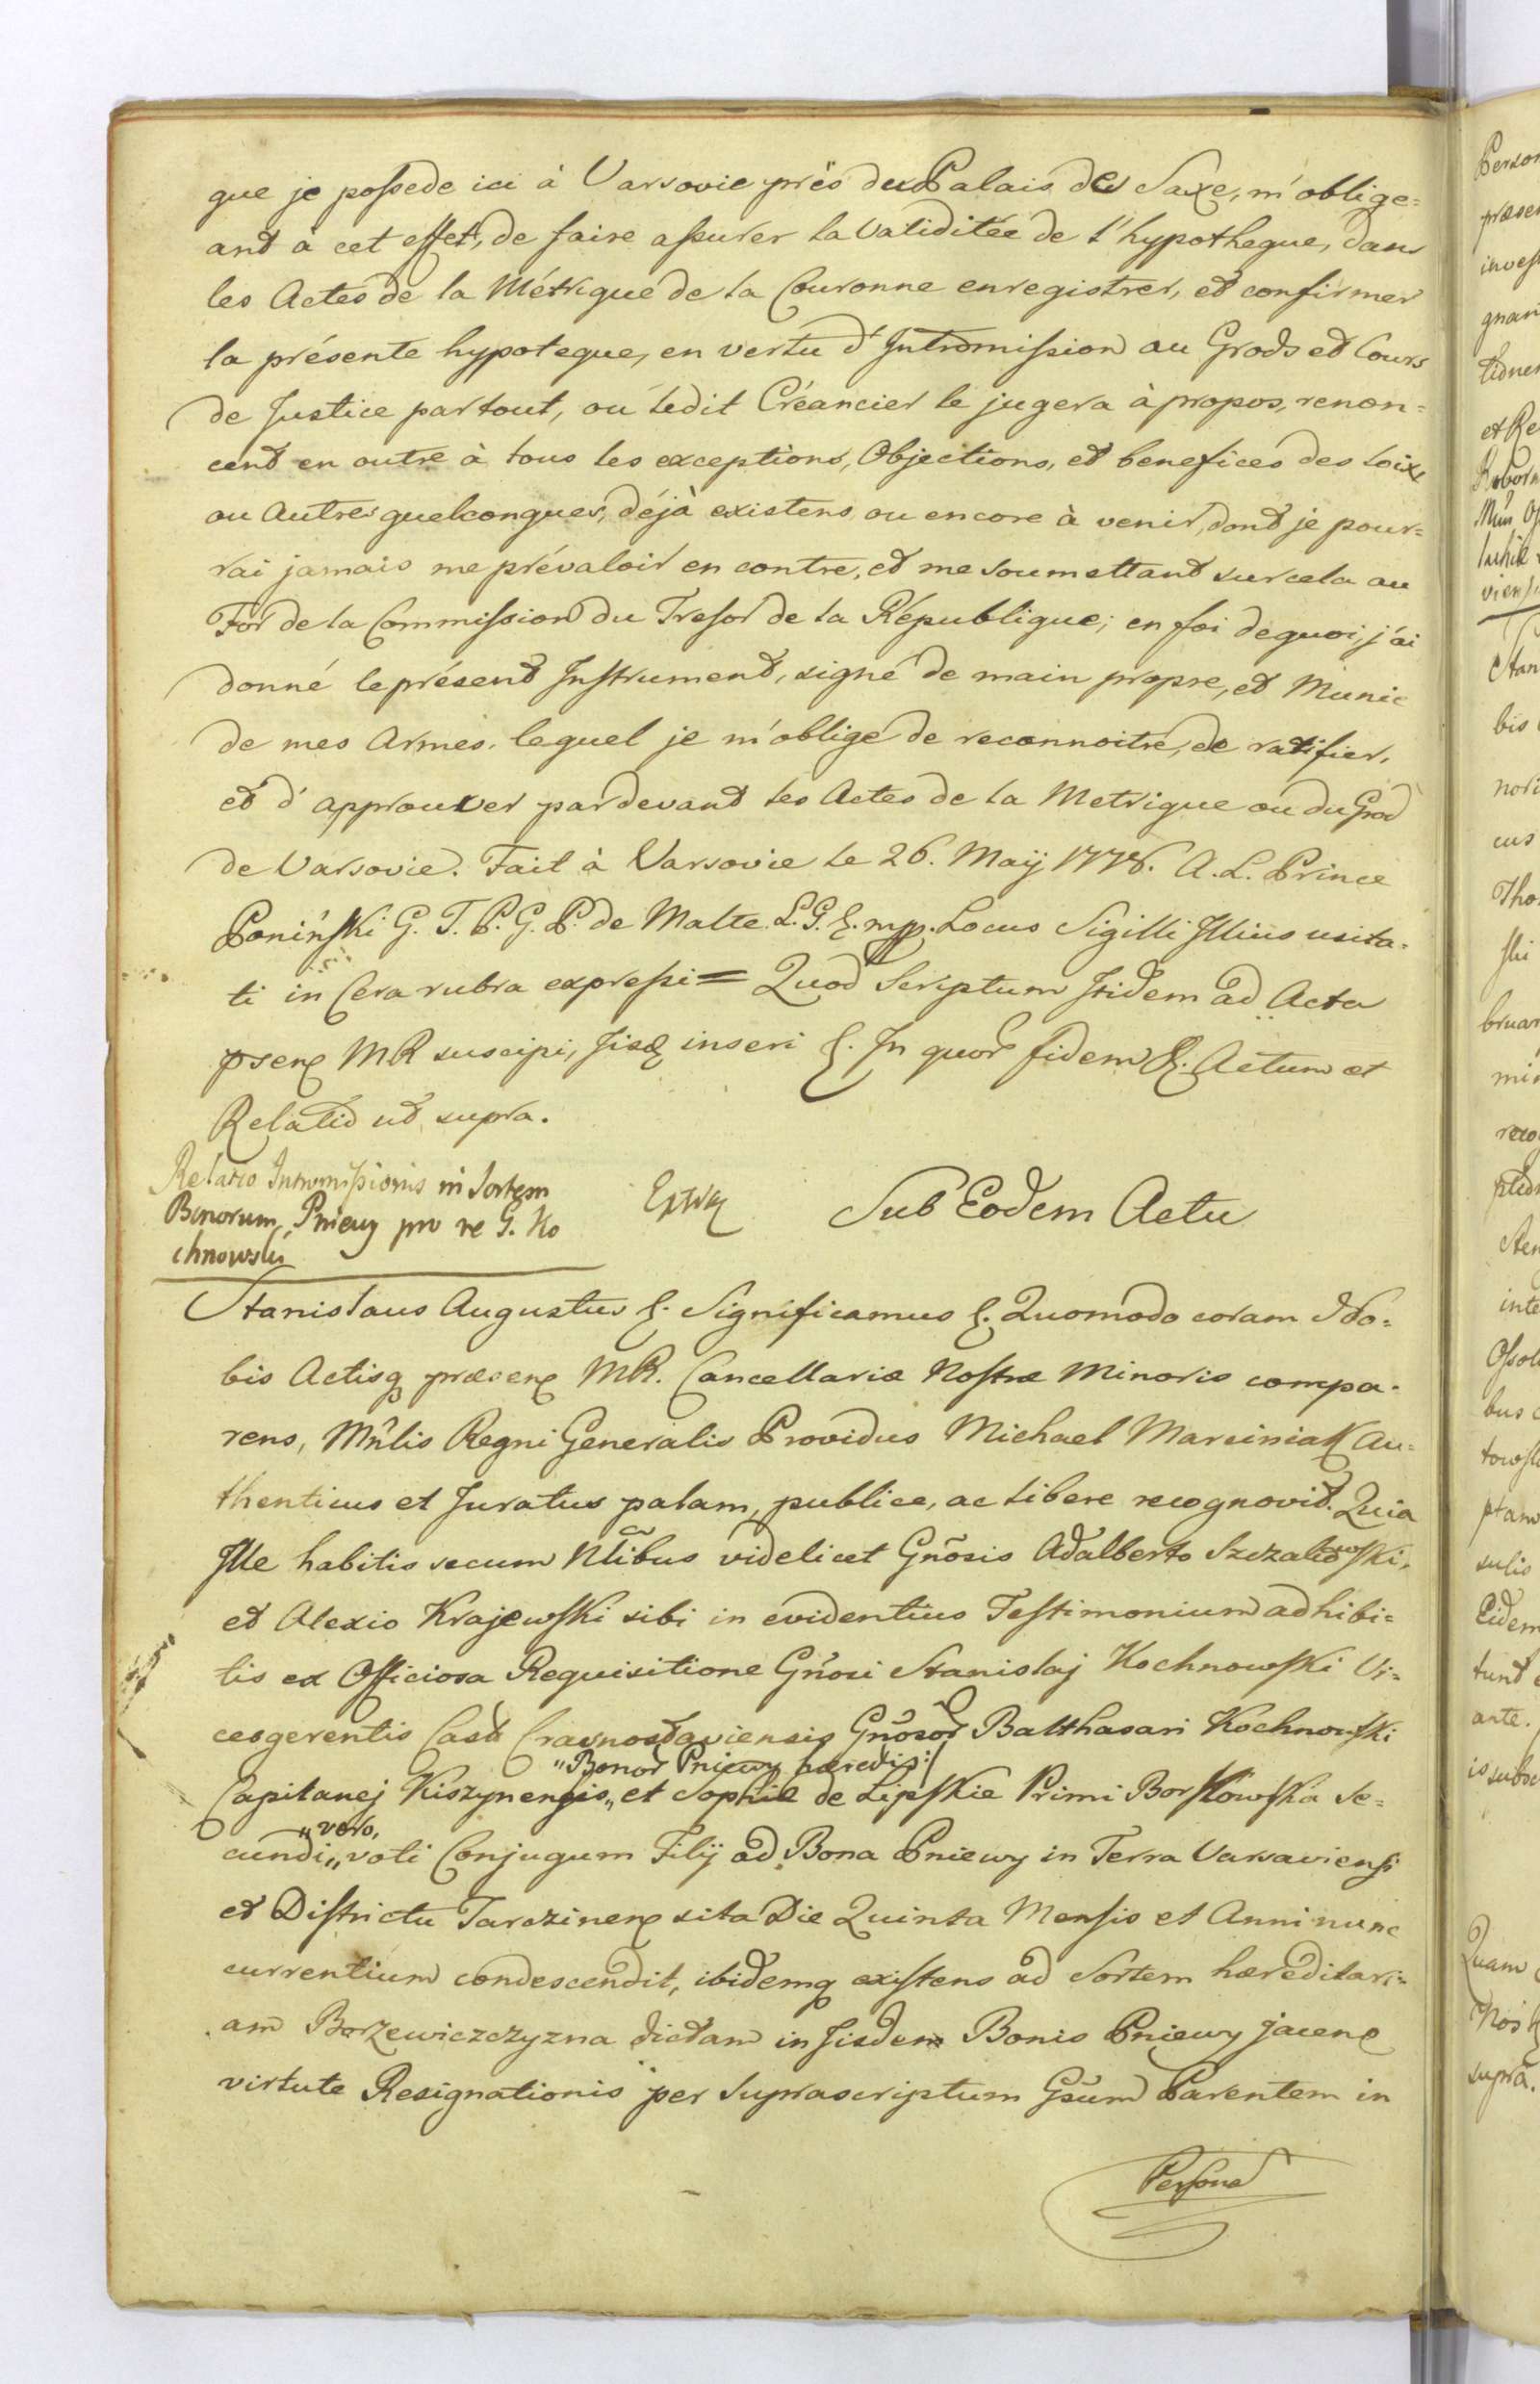 que je possede ici à Varsovie près du Palais de Saxe, m'oblige=
ant à cet effet, de faire assurer la Validitée de l'hypotheque, dans
les Actes de la Métrique de la Couronne enregistrer, et confirmer
la présente hypoteque, en vertu d'Intromission au Grods et Cours
de Justice partout, où ledit Créancier le jugera à propos, renon=
cent en outre à tous les exceptions, Objections, et benefices des loix
ou Autres quelconques, déjà existens ou encore à venir, dont je pour=
rai jamais me prévaloir en contre, et me soumettant sur cela au
For de la Commission du Tresor de la République; en foi de quoi, j'ai
donné le présent Instrument, signé de main propre, et Munie
de mes Armes, lequel je m'oblige de reconnoitre, de ratifier,
et d'approuver pardevant les Actes de la Metrique ou du Grod
de Varsovie. Fait à Varsovie le 26. Maÿ 1778. A. L. Prince
Poniński G. T. P. G. P. de Malte. L. G. mpp. Locus Sigilli Illius usita=
ti in Cera rubra expressi = Quod Scriptum Itidem ad Acta
MR suscipi, inseri In quor fidem Actum et
Relatio ut supra.
Relatio Intromissionis in Sortem
Bonorum, Pniewy pro re G. Ko
chnowski
Sub Eodem Actu
Stanislaus Augustus Significamus Quomodo coram No=
bis Actisq MR. Cancellariæ Nostræ Minoris compa=
rens, Mñlis Regni Generalis Providus Michael Marciniak Au=
thenticus et Juratus palam, publice, ac libere recognovit. Quia
Ille habitis secum Nlibus videlicet Gñosis Adalberto
et Alexio Krajewski sibi in evidentius Testimonium adhibi=
tis ex Officiosa Requisitione Gñosi Stanislaj Kochnowski Vi=
cesgerentis Cast Crasnostaviensis Gñosor Balthasari Kochnowski
„Bonor Pniewy hæredis:/
Capitanej Kiszynensis„ et Sophiæ de Lipskie Primi Borkowska Se=
„vero,
cundi„ voti Conjugum Filij ad Bona Pniewy in Terra Varsaviensi
et Districtu Tarczinen sita Die Quinta Mensis et Anni nunc
currentium condescendit, ibidemq existens ad Sortem hæreditari=
am Borzewiczczyzna dictam in Iisdem Bonis Pniewy jacen
virtute Resignationis per Suprascriptum Gsum Parentem in
Persona